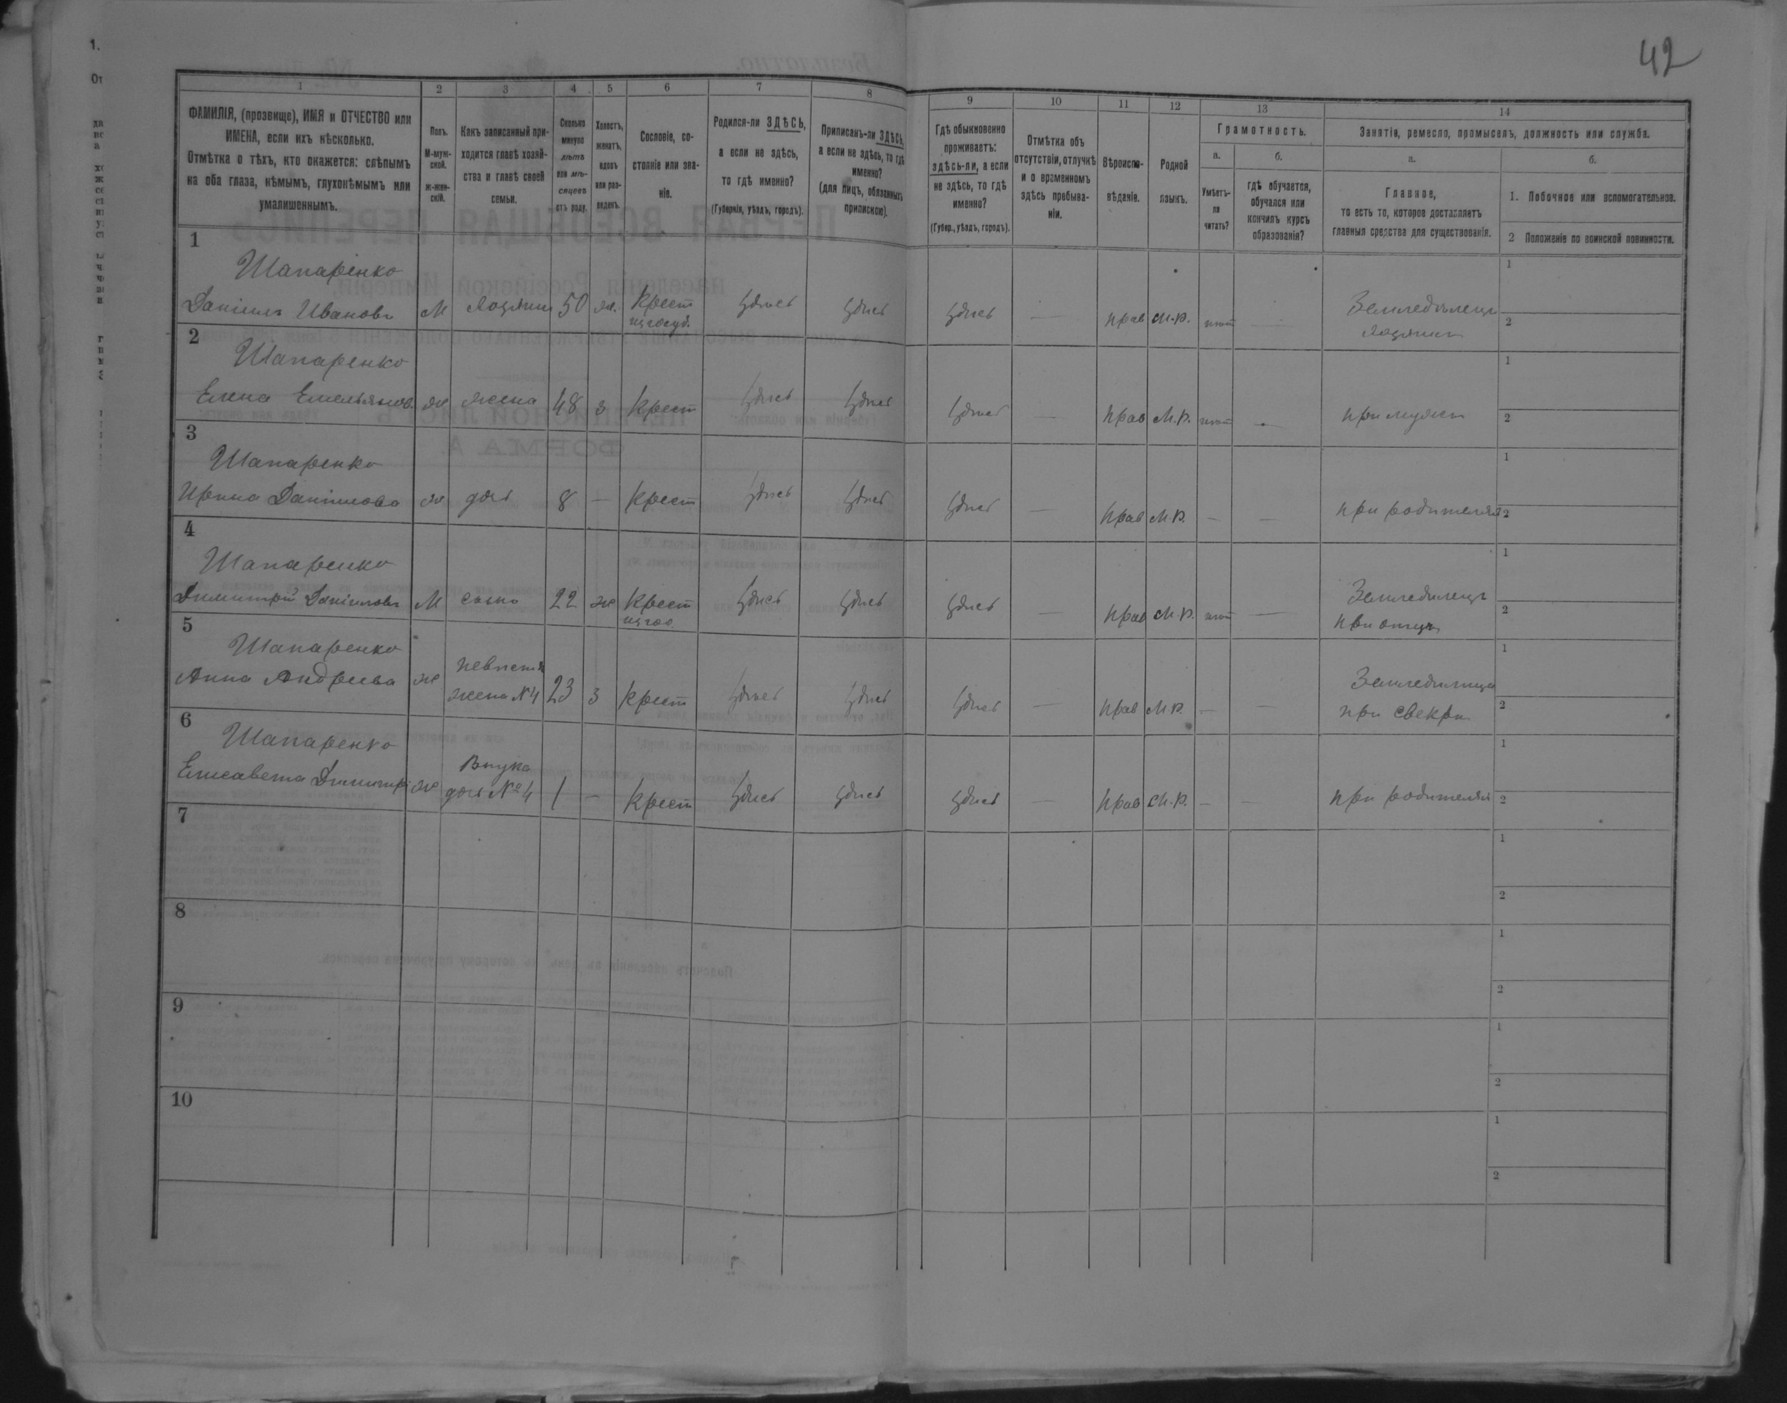 42
1 2 3 4 5 6 7 8 9 10 11 12 13 14
ФАМИЛІЯ, (прозвище), ИМЯ и ОТЧЕСТВО или
ИМЕНА, если ихъ нѣсколько.
Отмѣтка о тѣхъ, кто окажется: слѣпымъ
на оба глаза, нѣмымъ, глухонѣмымъ или
умалишеннымъ.
Полъ.
М-муж-
ской.
ж-жен-
скій.
Какъ записанный при-
ходится главѣ хозяй-
ства и главѣ своей
семьи.
Сколько
минуло
лѣтъ
или мѣ-
сяцевъ
отъ роду.
Холостъ,
женатъ,
вдовъ
или раз-
веденъ.
Сословіе, со-
стояніе или зва-
ніе.
Родился-ли ЗДѢСЬ,
а если не здѣсь,
то гдѣ именно?
(Губернія, уѣздъ, городъ).
Приписанъ-ли ЗДѢСЬ,
а если не здѣсь, то гдѣ
именно?
(для лицъ, обязанныхъ
припискою).
Гдѣ обыкновенно
проживаетъ:
здѣсь-ли, а если
не здѣсь, то гдѣ
именно?
(Губер., уѣздъ, городъ).
Отмѣтка объ
отсутствіи, отлучкѣ
и о временномъ
здѣсь пребыва-
ніи.
Вѣроиспо-
вѣданіе.
Родной
языкъ.
Грамотность.
а.
Умѣетъ-
ли
читать?
б.
гдѣ обучается,
обучался или
кончилъ курсъ
образованія?
Занятіе, ремесло, промыселъ, должность или служба.
а.
Главное,
то есть то, которое доставляетъ
главныя средства для существованія.
б.
1. Побочное или вспомогательное.
2 Положеніе по воинской повинности.
1
Шапаренко
Даніилъ Ивановъ М хозяинъ 50 ж. крест здѣсь здѣсь здѣсь — прав М.р. нѣтъ — Земледѣлецъ
из госуд. хозяинъ
1
2
2
Шапаренко
Елена Емельянов. ж жена 48 з крест здѣсь здѣсь здѣсь — прав М.р. нѣтъ — при мужѣ
1
2
3
Шапаренко
Ирина Даніилова ж дочь 8 — крест здѣсь здѣсь здѣсь — прав М.р. — — при родителях
1
2
4
Шапаренко
Димитрій Даніиловъ М сынъ 22 ж крест здѣсь здѣсь здѣсь — прав М.р. нѣтъ — Земледѣлецъ
из гос при отцѣ
1
2
5
Шапаренко невѣстка Земледѣлица
Анна Андреева ж жена №4 23 з крест здѣсь здѣсь здѣсь — прав М.р. — — при свекрѣ
1
2
6
Шапаренко Внука
Елисавета Димитр ж дочь №4 1 — крест здѣсь здѣсь здѣсь — прав М.р. — — при родителях
1
2
7
1
2
8
1
2
9
1
2
10
1
2